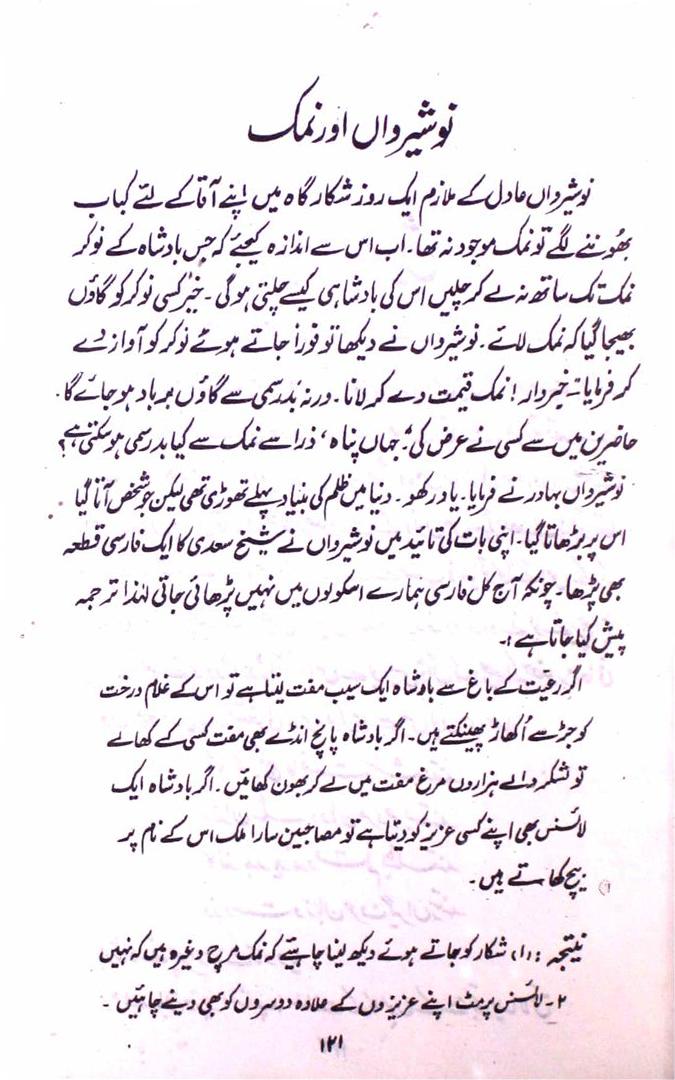 نوشیرواں اور نمک
نوشیرواں عادل کے ملازم ایک روز شکار گاہ میں اپنے آقا کے لئے کباب
بھُوننے لگے تو نمک موجود نہ تھا۔ اب اس سے اندازہ کیجئے کہ جس بادشاہ کے نوکر
نمک تک ساتھ نہ لے کر چلیں اس کی بادشاہی کیسے چلتی ہوگی۔ خیر کسی نوکر کو گاؤں
بھیجا گیا کہ نمک لائے۔ نوشیرواں نے دیکھا تو فوراً جاتے ہوئے نوکر کو آواز دے
کر فرمایا۔ خبردار! نمک قیمت دے کر لانا۔ ورنہ بدرسمی سے گاؤں برباد ہو جائے گا۔
حاضرین میں سے کسی نے عرض کی "جہاں پناہ، ذرا سے نمک سے کیا بدرسمی ہو سکتی ہے؟
نوشیرواں بہادر نے فرمایا۔ یاد رکھو۔ دنیا میں ظلم کی بنیاد پہلے تھوڑی تھی لیکن جو شخص آتا گیا
اس پر بڑھاتا گیا۔ اپنی بات کی تائید میں نوشیرواں نے شیخ سعدی کا ایک فارسی قطعہ
بھی پڑھا۔ چونکہ آج کل فارسی ہمارے اسکولوں میں نہیں پڑھائی جاتی لہٰذا ترجمہ
پیش کیا جاتا ہے :۔
اگر رعیّت کے باغ سے بادشاہ ایک سیب مفت لیتا ہے تو اس کے غلام درخت
کو جڑ سے اُکھاڑ پھینکتے ہیں۔ اگر بادشاہ پانچ انڈے بھی مفت کسی کے کھالے
تو لشکر والے ہزاروں مرغ مفت میں لے کر بھون کھائیں۔ اگر بادشاہ ایک
لائسنس بھی اپنے کسی عزیز کو دیتا ہے تو مصاحبین سارا ملک اس کے نام پر
بیچ کھاتے ہیں۔
نیتجہ : (۱) شکار کو جاتے ہوئے دیکھ لینا چاہیئے کہ نمک مرچ وغیرہ ہیں کہ نہیں
۲۔ لائسنس پرمٹ اپنے عزیزوں کے علاوہ دوسروں کو بھی دینے چاہئیں۔
۱۲۱